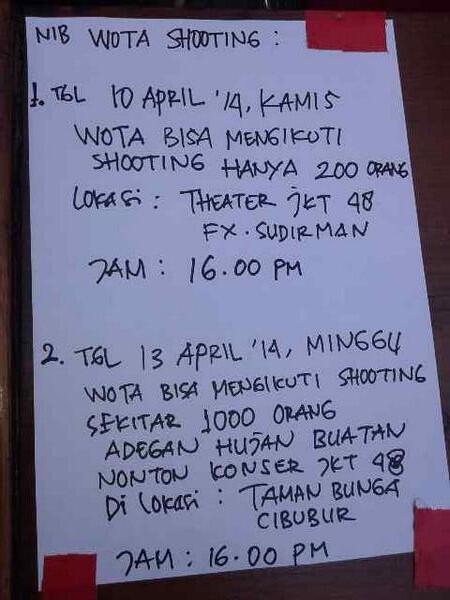 NIB WOTA SHOOTING :
1. TGL 10 APRIL '14, KAMIS
WOTA BISA MENGIKUTI
SHOOTING HANYA 200 ORANG
LOKASI : THEATER JKT 48
FX. SUDIRMAN
JAM : 16.00 PM
2. TGL 13 APRIL '14, MINGGU
WOTA BISA MENGIKUTI SHOOTING
SEKITAR 1000 ORANG
ADEGAN HUJAN BUATAN
NONTON KONSER JKT 48
Di LOKASI : TAMAN BUNGA
CIBUBUR
JAM : 16.00 PM